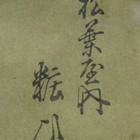 松葉屋内
粧